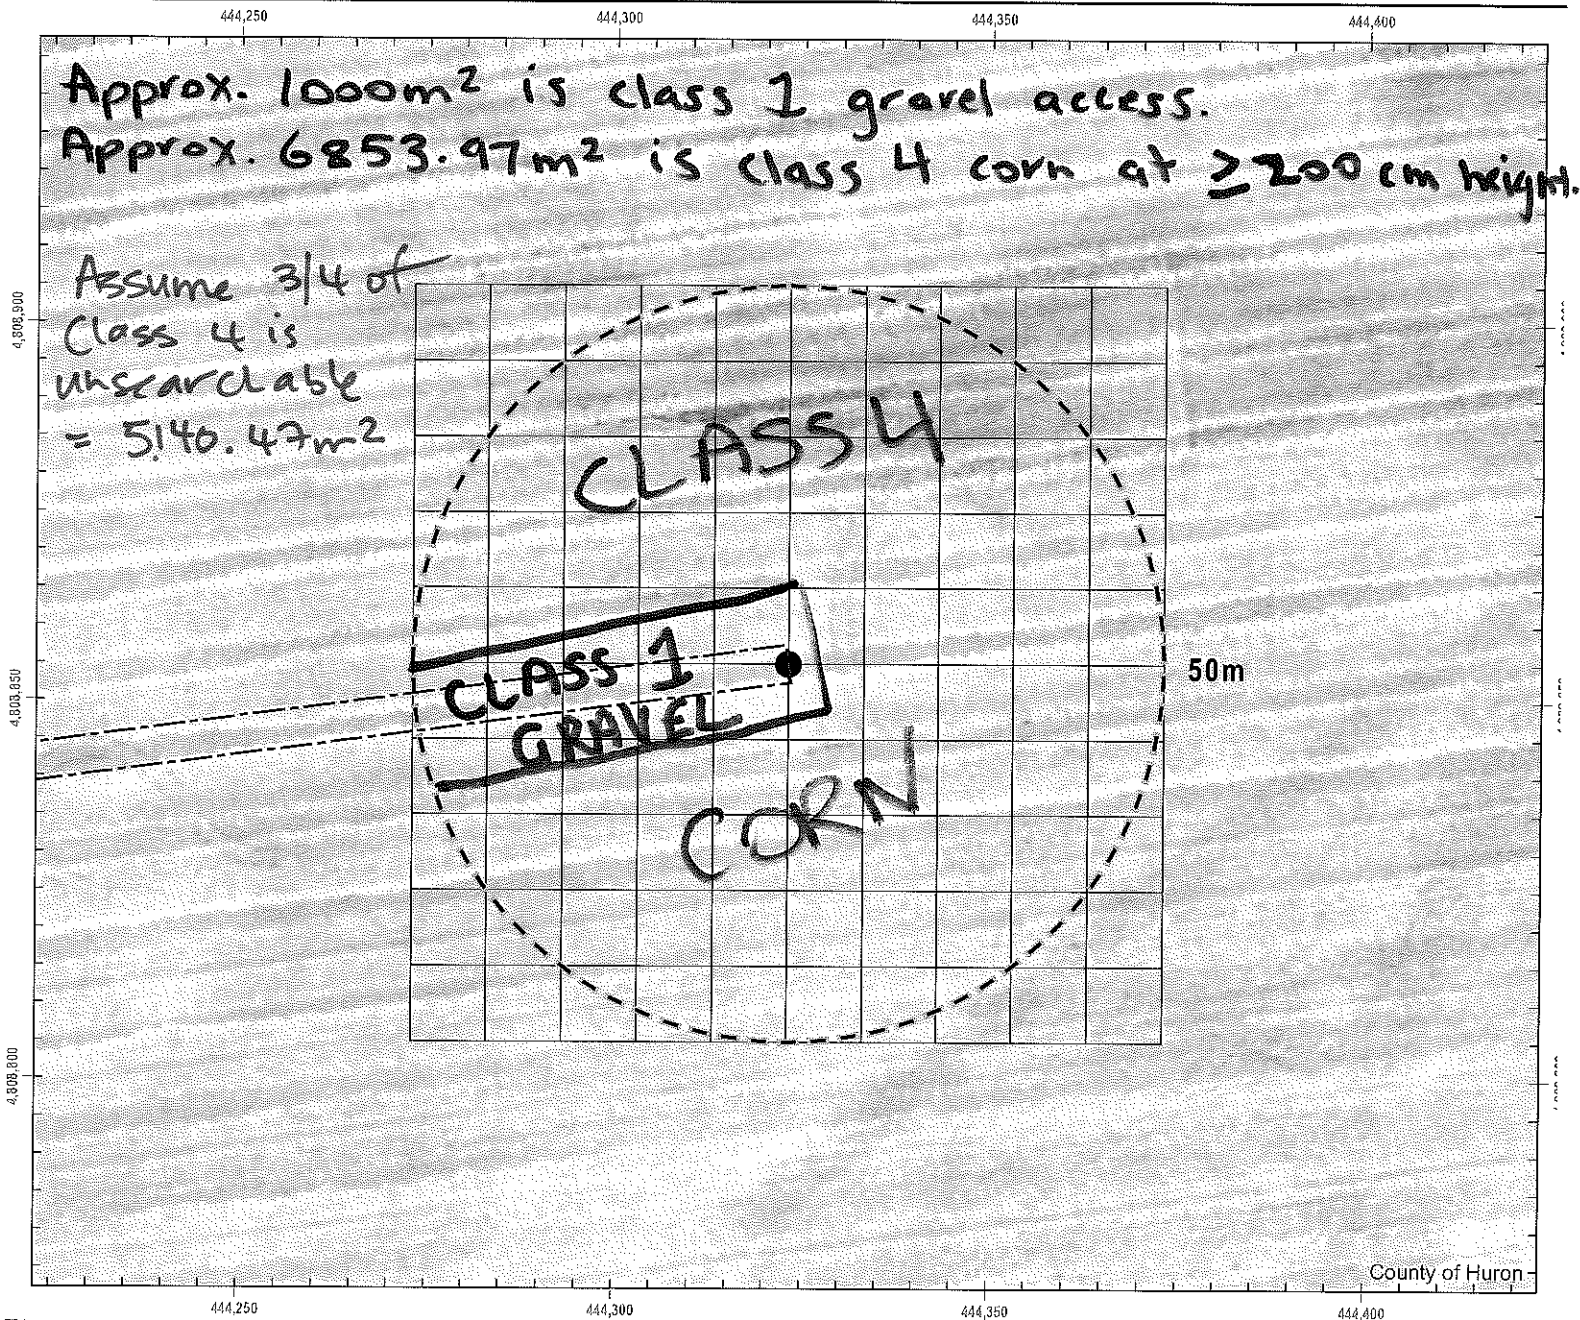 444,250 444,300 444,350 444,400
Approx. 1000m² is class 1 gravel access.
Approx. 6853.97m² is class 4 corn at ≥200 cm height.
Assume 3/4 of
Class 4 is
unsearchable
= 5140.47m²
4,808,900
CLASS 4
CLASS 1
GRAVEL
4,808,850
50m
CORN
4,808,800
County of Huron
444,250 444,300 444,350 444,400